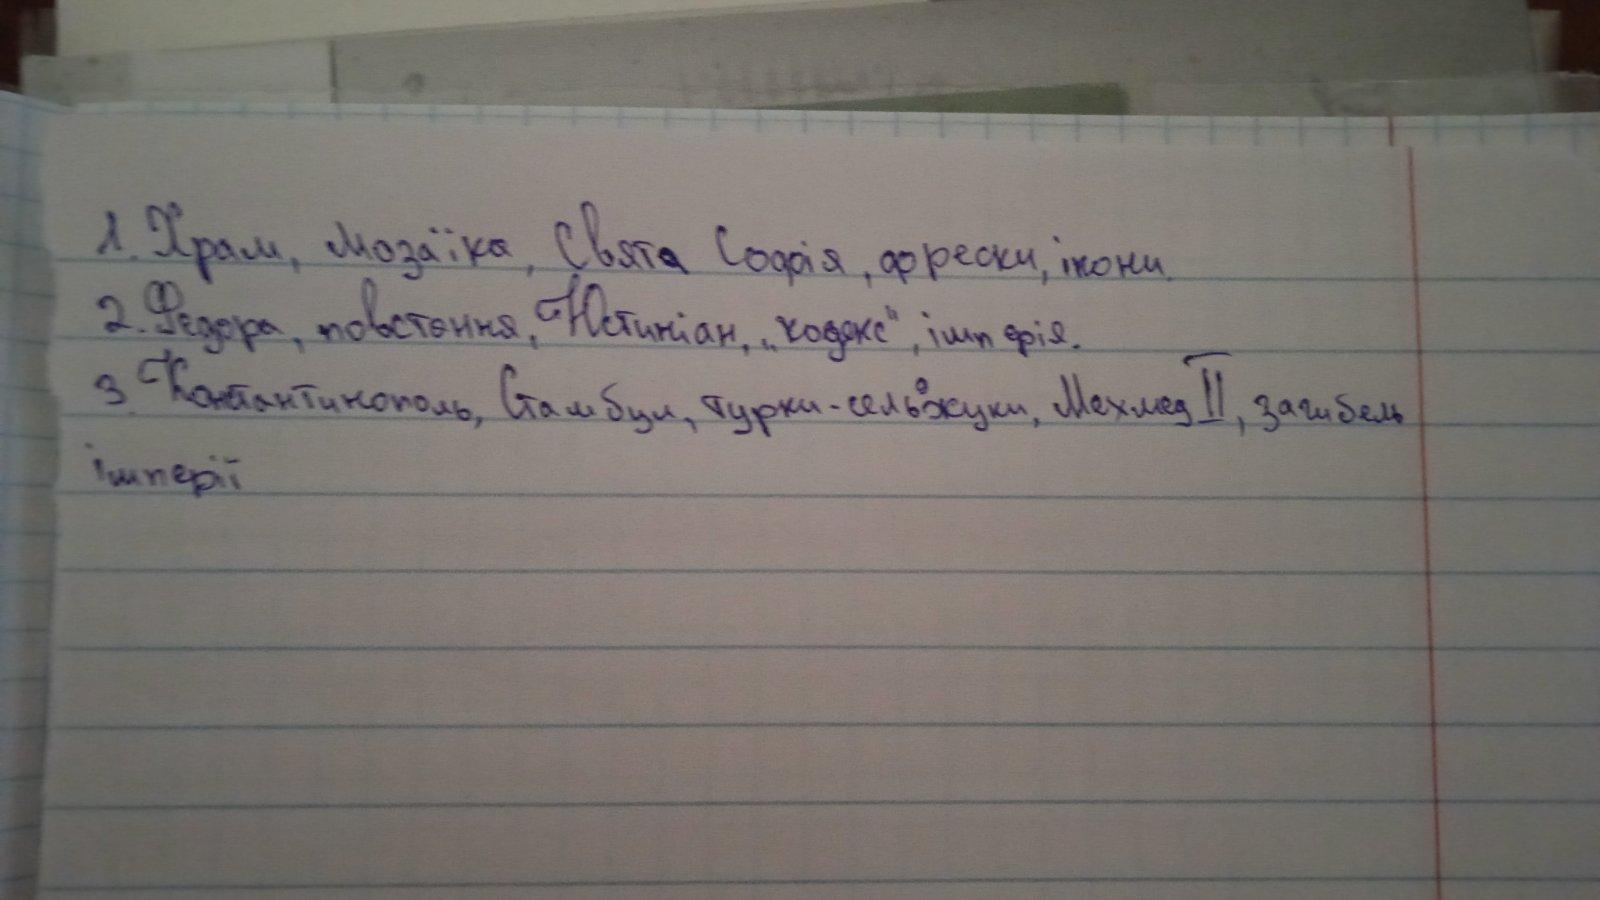 1. Храм, мозаїка, Свята Софія, фрески, ікони.
2. Федора, повстання, Юстиніан, „кодекс", імперія.
3. Константинополь, Стамбул, турки-сельджуки, Мехмед II, загибель
імперії